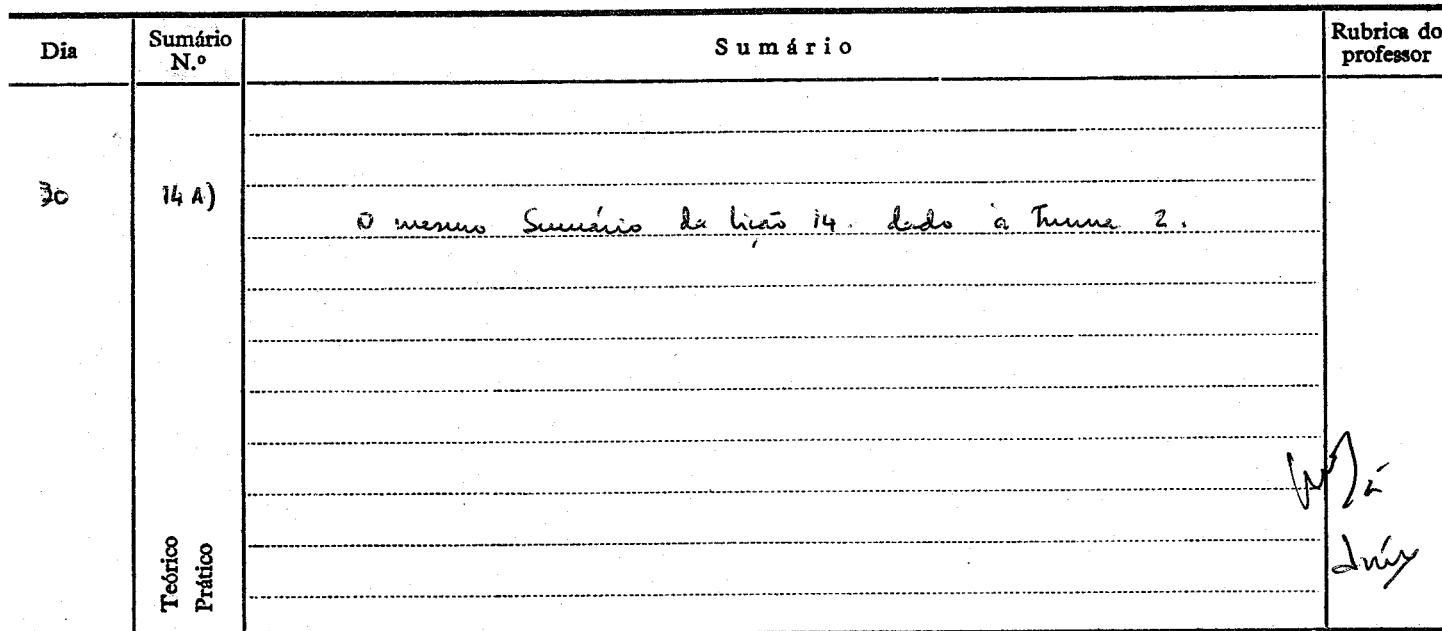 Dia
Sumário N.º
Sumário
Rubrica do professor
30
14 A)
O mesmo Sumário da lição 14. dado à Turma 2.
Teórico
Prático